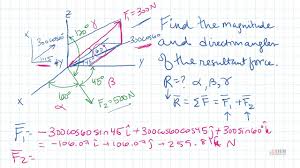 z
F̄₁=300N
300cos60°
120°
γ
60°
45°
y
α
β
x
60°
45°
F̄₂=500N
Find the magnitude
and direction angles
of the resultant force.
R=? α, β, γ
R̄ = ΣF̄ = F̄₁ + F̄₂
F̄₁ = -300cos60sin45 î +300cos60cos45 ĵ +300sin60 k̂
= -106.07 î +106.07 ĵ +259.81 k̂ N
F̄₂ =